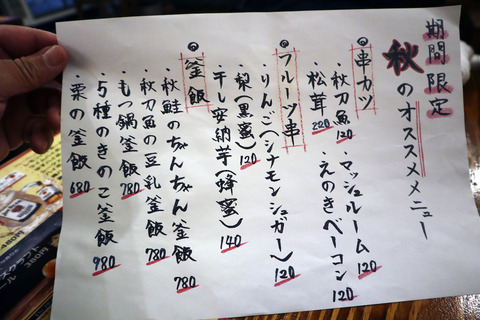 期間限定
秋のオススメメニュー
◎串カツ
秋刀魚 120
マッシュルーム 120
松茸 220
えのきベーコン 120
◎フルーツ串
りんご(シナモンシュガー) 120
梨(黒蜜) 120
干し安納芋(蜂蜜) 140
◎釜飯
秋鮭のちゃんちゃん釜飯 780
秋刀魚の豆乳釜飯 780
もつ鍋釜飯 780
5種のきのこ釜飯 980
栗の釜飯 680